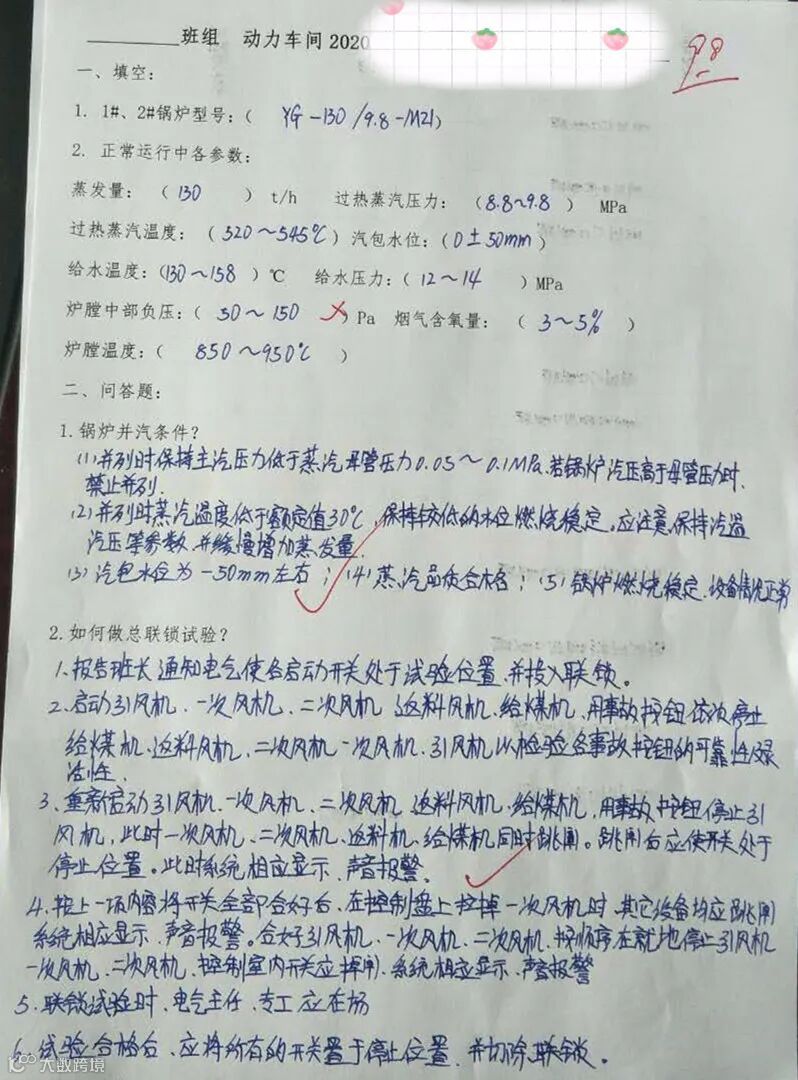 班组 动力车间2020
98
一、填空：
1. 1#、2#锅炉型号：( YG-130/9.8-MZ1)
2. 正常运行中各参数：
蒸发量： （130 ） t/h 过热蒸汽压力： （8.8~9.8 ） MPa
过热蒸汽温度：（520～545℃）汽包水位：（0±50mm）
给水温度：(130～158 ）℃ 给水压力：（12～14 ）MPa
炉膛中部负压：（ 50～150 ）Pa 烟气含氧量： （ 3～5% ）
炉膛温度：（ 850～950℃ ）
二、问答题：
1.锅炉并汽条件？
(1)并列时保持主汽压力低于蒸汽母管压力0.05～0.1MPa.若锅炉汽压高于母管压力时、
禁止并列.
(2)并列时蒸汽温度低于额定值30℃，保持较低的水位燃烧稳定。应注意保持汽温
汽压等参数，并缓慢增加蒸发量.
(3)汽包水位为-50mm左右；(4)蒸汽品质合格；(5)锅炉燃烧稳定、设备情况正常
2.如何做总联锁试验？
1、报告班长通知电气使各启动开关处于试验位置，并投入联锁。
2、启动引风机、一次风机、二次风机 返料风机、给煤机，用事故按钮依次停止
给煤机、返料风机、二次风机一次风机、引风机以检验各事故按钮的可靠性及灵
活性.
3、重新启动引风机、一次风机、二次风机 返料风机、给煤机，用事故按钮停止引
风机，此时一次风机、二次风机、返料机、给煤机同时跳闸。跳闸后应使开关处于
停止位置。此时系统相应显示，声音报警.
4、按上一项内容将开关全部合好后、在控制盘上拉掉一次风机时，其它设备均应跳闸
系统相应显示、声音报警。合好引风机、一次风机、二次风机、按顺序在就地停止引风机
一次风机、二次风机、控制室内开关应掉闸、系统相应显示、声音报警
5、联锁试验时、电气主任、专工应在场
6、试验合格后、应将所有的开关置于停止位置，并切除联锁。
大数跨境